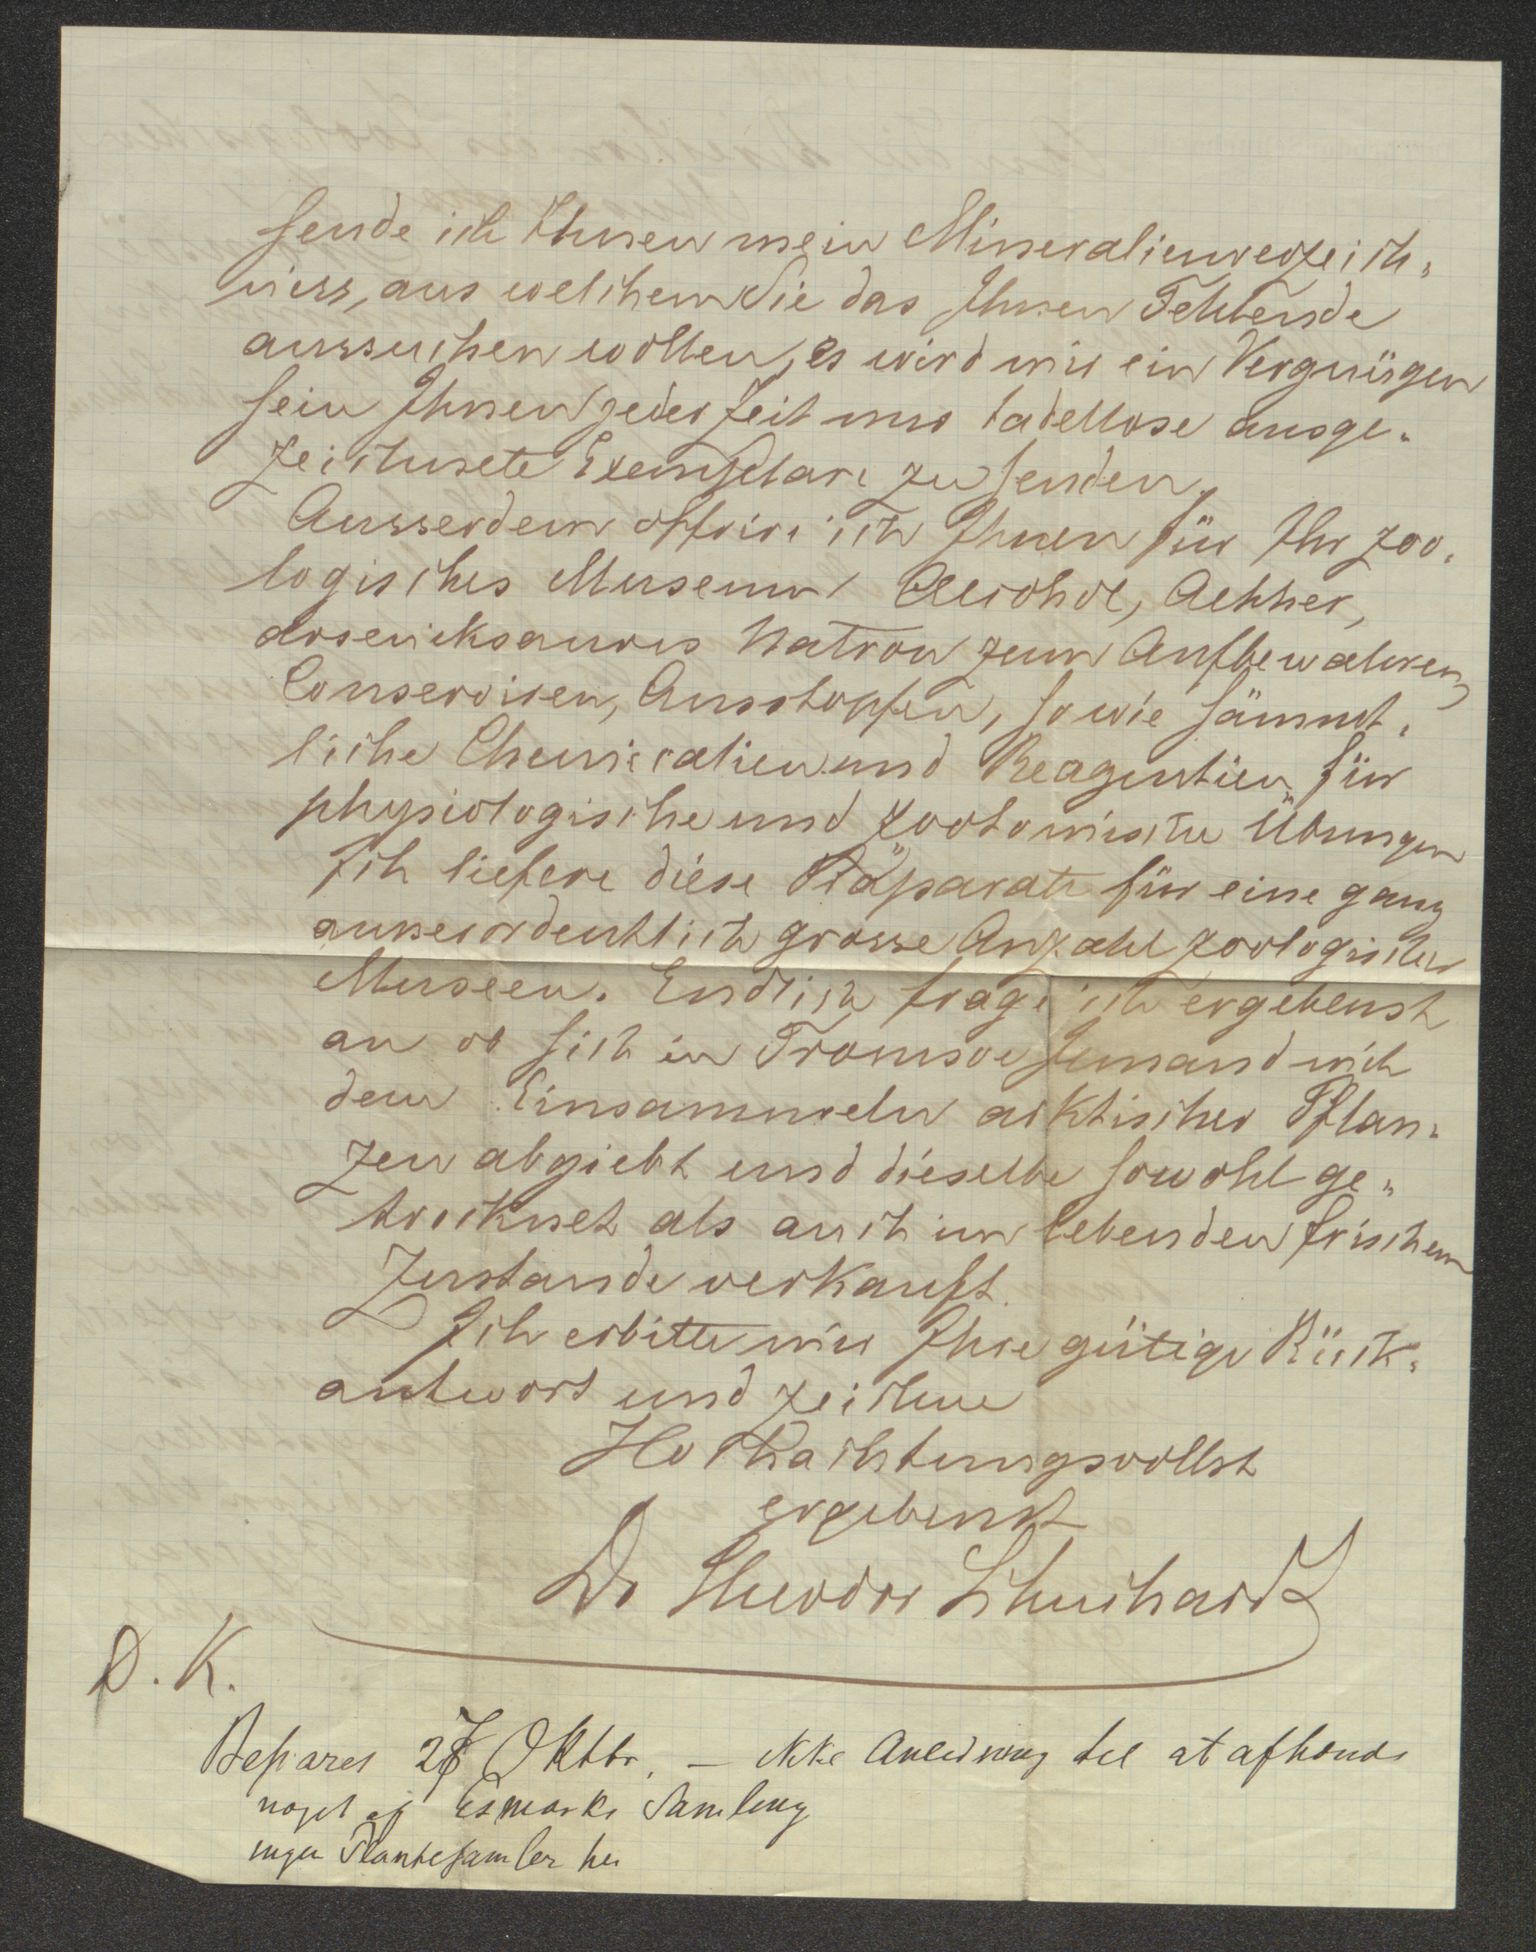 sende ich Ihnen mein Mineralienverzeich-
niss, aus welchem Sie das Ihnen Fehlende
aussuchen wollen, es wird mir ein Vergnügen
sein Ihnen jeder Zeit nur tadellose ausge-
zeichnete Exemplare zu senden.
Ausserdem offrire ich Ihnen für Ihr zoo-
logisches Museum Alcohol, Aether,
arseniksaures Natron zum Aufbewahren,
Conserviren, Ausstopfen, sowie sämmt-
liche Chemicalien und Reagentien für
physiologische und zootomische Übungen
Ich liefere diese Präparate für eine ganz
ausserordentlich grosse Anzahl zoologischer
Museen. Endlich frage ich ergebenst
an ob sich in Tromsoe Jemand mit
dem Einsammeln arktischer Pflan-
zen abgiebt und dieselbe sowohl ge-
trocknet als auch im lebenden frischem
Zustande verkauft.
Ich erbitte mir Ihre gütige Rück-
antwort und zeichne
Hochachtungsvollst
ergebenst
Dr Theodor Schuchardt
D. K.
Besvaret 27 Oktbr. — ikke Anledning til at afhænde
noget af Esmarks Samling
ingen Plantesamler her